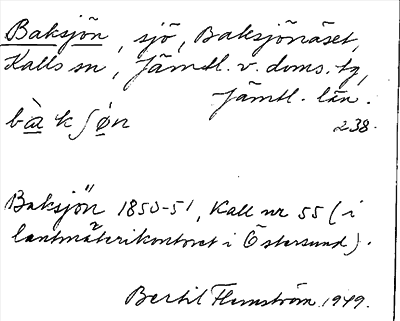 Baksjön, sjö, Baksjönäset,
Kalls sn, Jämtl. v. doms. tg,
Jämtl. län.
bàkʃøn 238.
Baksjön 1850-51, Kall nr 55 (i
lantmäterikontoret i Östersund).
Bertil Flemström 1949.